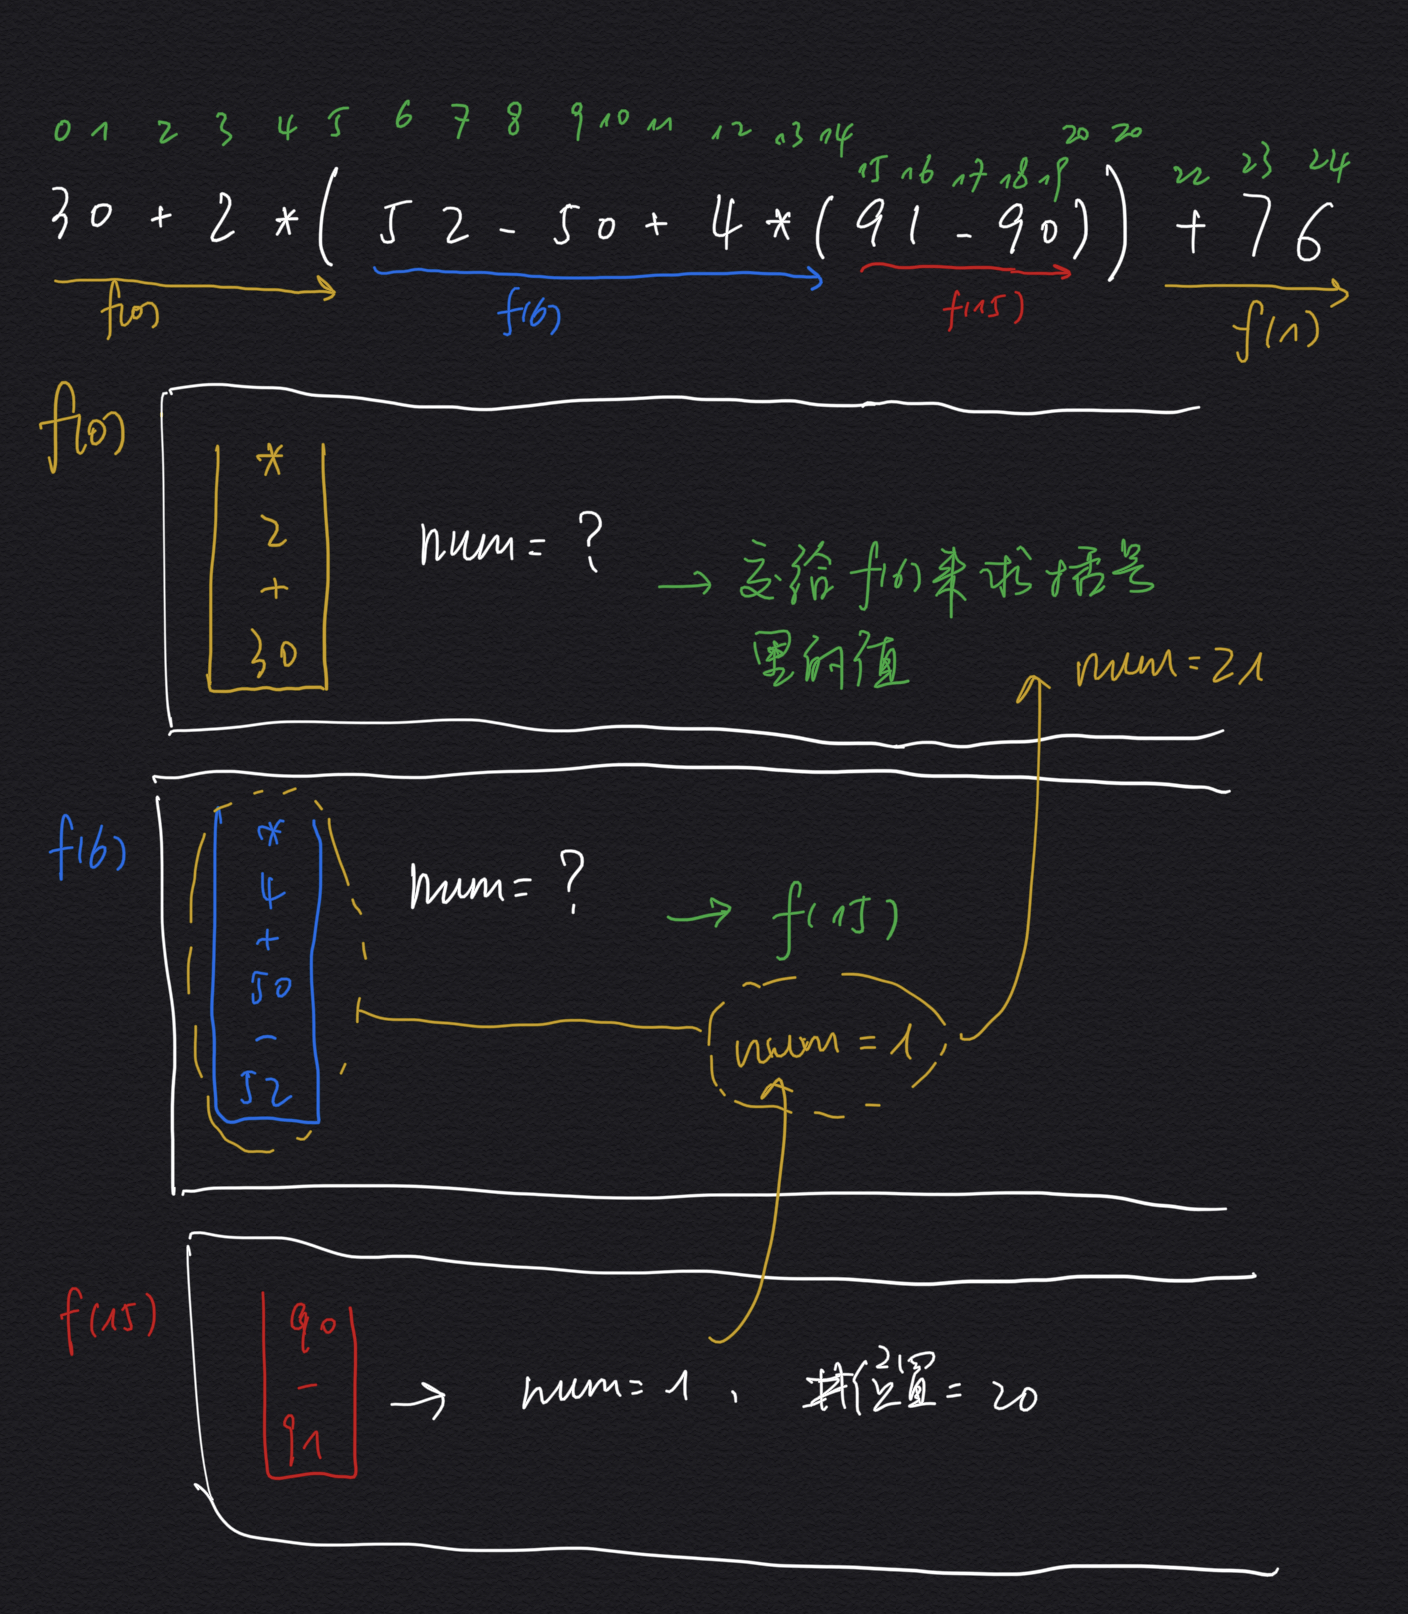 0 1 2 3 4 5 6 7 8 9 10 11 12 13 14 15 16 17 18 19 20 20 22 23 24
30 + 2 * ( 52 - 50 + 4 * ( 91 - 90 ) ) + 76
f(0) f(6) f(15) f(1)
f(0)
*
2
+
30
num = ?
→ 交给 f(6) 来求括号
里的值
num = 21
f(6)
*
4
+
50
-
52
num = ?
→ f(15)
num = 1
f(15)
90
-
91
→ num = 1, 位置 = 20